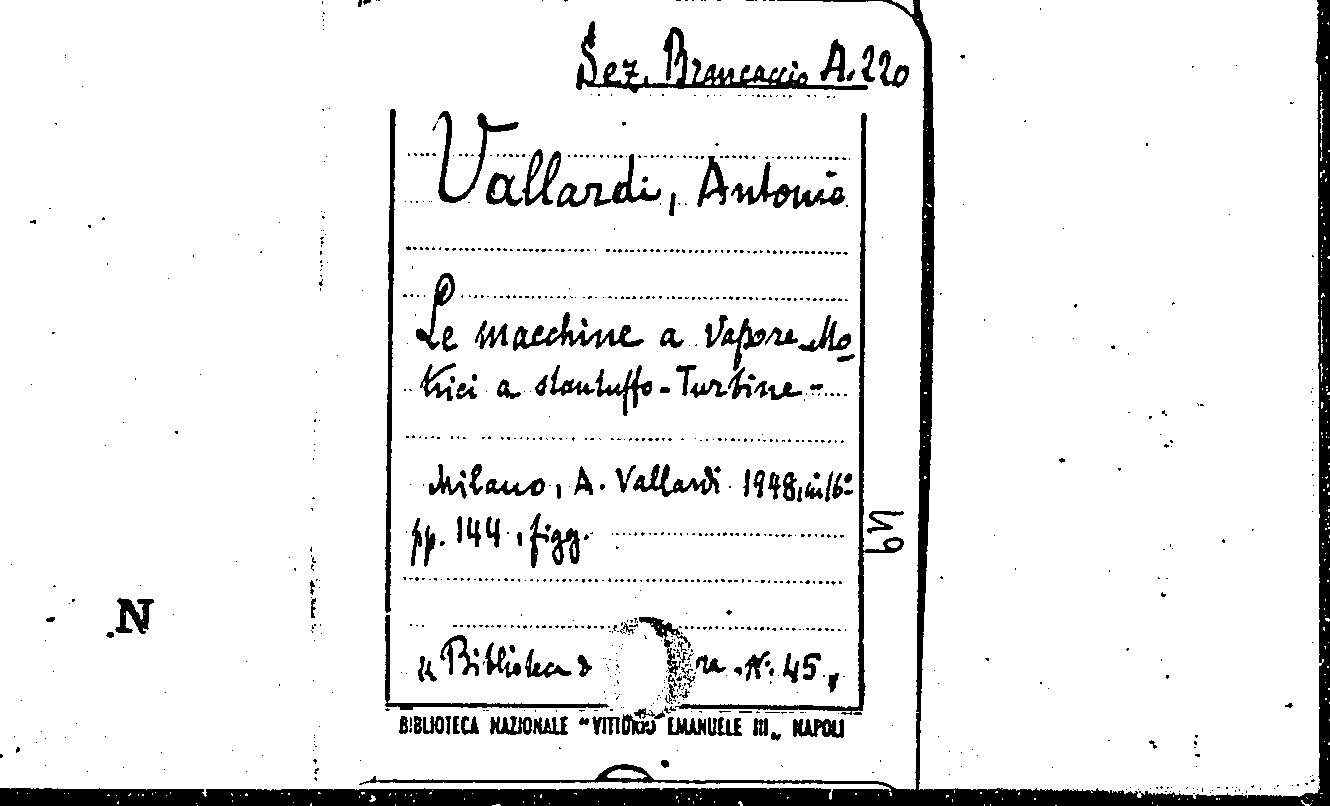 Sez. Brancaccio A. 220
Vallardi, Antonio
Le macchine a vapore - Mo
trici a stantuffo - Turbine -
Milano, A. Vallardi 1948, in 16°
pp. 144, figg.
N
"Biblioteca d ra. N. 45"
BIBLIOTECA NAZIONALE "VITTORIO EMANUELE III" NAPOLI